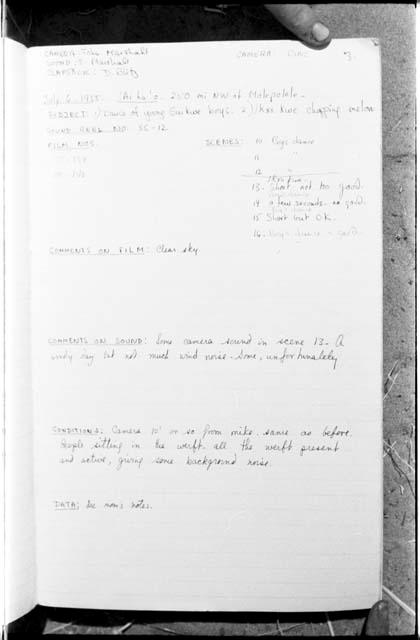 CAMERA: John Marshall
CAMERA: CINE 3.
SOUND: L. Marshall
CLAPSTICK: D. Blitz
July 6 1955. 'Ai ha 'o. 250 mi NW of Molepolole.
SUBJECT: 1) Dance of young Guikwe boys. 2) Kwe chopping melon
SOUND REEL NO. 55-12
FILM NOS.
SCENES: 10 Boys dance
11 "
12 "
13 - Short not too good.
14 a few seconds - no good.
15 Short but OK.
16 - Boys dance - good.
COMMENTS ON FILM: Clear sky.
COMMENTS ON SOUND: Some camera sound in scene 13. A
windy day but not much wind noise. Some, unfortunately
CONDITIONS: Camera 10' or so from mike. same as before.
People sitting in the werft. all the werft present
and active, giving some background noise.
DATA: See mom's notes.